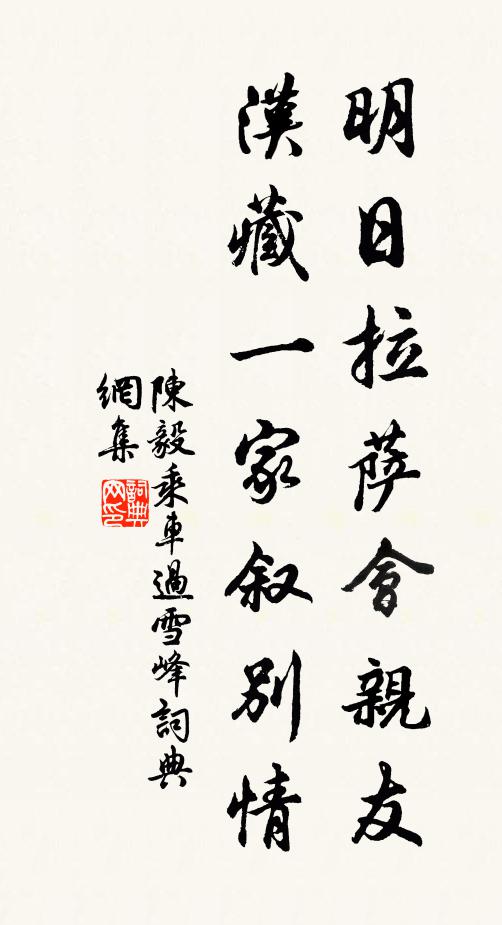 明日拉薩會親友
漢藏一家叙別情
陳毅乘車過雪峰詞典
網集
詞典
网印